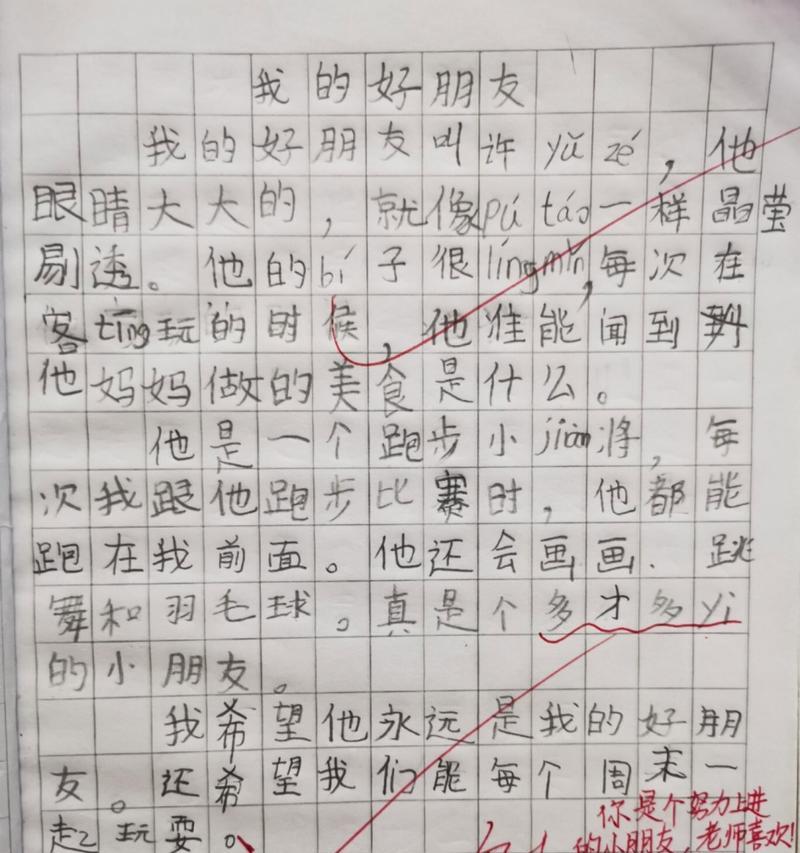 我的好朋友
我的好朋友叫许yǔ zé，他
眼睛大大的，就像pú táo一样晶莹
剔透。他的bí子很língmǐn，每次在
客tīng玩的时候，他准能闻到
他妈妈做的美食是什么。
他是一个跑步小jiàn将，每
次我跟他跑步比赛时，他都能
跑在我前面。他还会画画、跳
舞和羽毛球。真是个多才多yì
的小朋友。
我希望他永远是我的好朋
友。还希望我们能每个周末一
起玩耍。
你是个努力上进
的小朋友，老师喜欢！